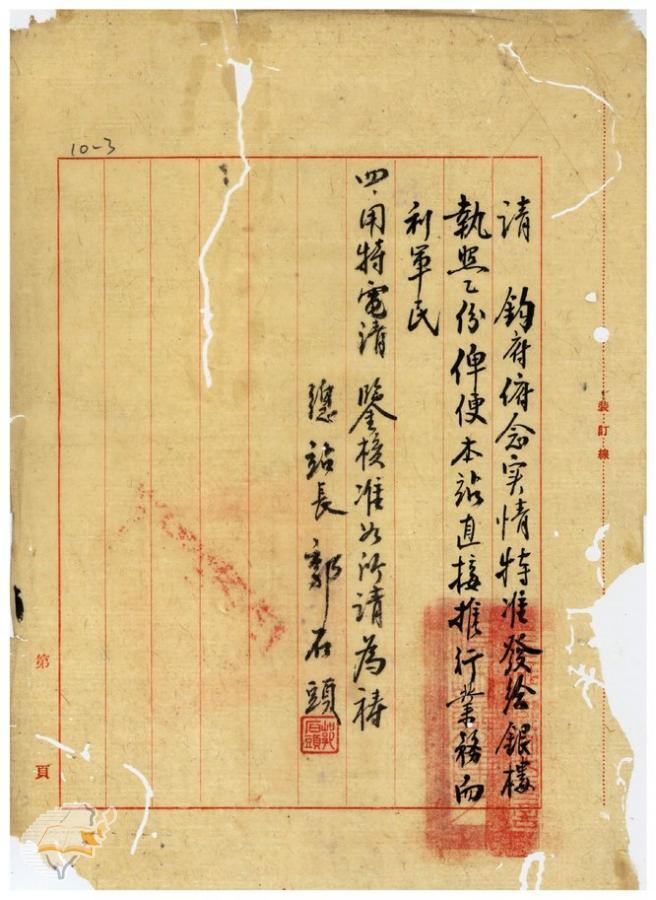 10-3
請 鈞府俯念实情特准發给銀樓
執照乙份俾便本站直接推行業務而
利軍民
四、用特電請 鑒核准如所請為禱
總站長 郭石頭
裝訂線
第 頁